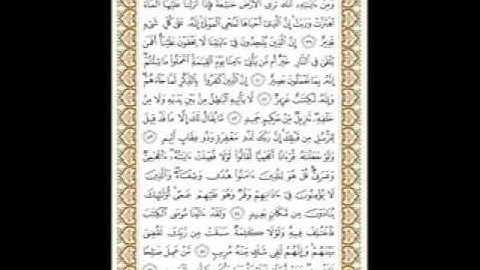 وَمِنْ ءَايَـٰتِهِۦٓ أَنَّكَ تَرَى ٱلْأَرْضَ خَـٰشِعَةً فَإِذَآ أَنزَلْنَا عَلَيْهَا ٱلْمَآءَ
ٱهْتَزَّتْ وَرَبَتْ إِنَّ ٱلَّذِىٓ أَحْيَاهَا لَمُحْىِ ٱلْمَوْتَىٰٓ إِنَّهُۥ عَلَىٰ كُلِّ شَىْءٍ
قَدِيرٌ ٣٩ إِنَّ ٱلَّذِينَ يُلْحِدُونَ فِىٓ ءَايَـٰتِنَا لَا يَخْفَوْنَ عَلَيْنَآ أَفَمَن
يُلْقَىٰ فِى ٱلنَّارِ خَيْرٌ أَم مَّن يَأْتِىٓ ءَامِنًا يَوْمَ ٱلْقِيَـٰمَةِ ٱعْمَلُوا۟ مَا شِئْتُمْ
إِنَّهُۥ بِمَا تَعْمَلُونَ بَصِيرٌ ٤٠ إِنَّ ٱلَّذِينَ كَفَرُوا۟ بِٱلذِّكْرِ لَمَّا جَآءَهُمْ
وَإِنَّهُۥ لَكِتَـٰبٌ عَزِيزٌ ٤١ لَّا يَأْتِيهِ ٱلْبَـٰطِلُ مِنۢ بَيْنِ يَدَيْهِ وَلَا مِنْ
خَلْفِهِۦ تَنزِيلٌ مِّنْ حَكِيمٍ حَمِيدٍ ٤٢ مَّا يُقَالُ لَكَ إِلَّا مَا قَدْ قِيلَ
لِلرُّسُلِ مِن قَبْلِكَ إِنَّ رَبَّكَ لَذُو مَغْفِرَةٍ وَذُو عِقَابٍ أَلِيمٍ ٤٣
وَلَوْ جَعَلْنَـٰهُ قُرْءَانًا أَعْجَمِيًّا لَّقَالُوا۟ لَوْلَا فُصِّلَتْ ءَايَـٰتُهُۥٓ ءَا۬عْجَمِىٌّ
وَعَرَبِىٌّ قُلْ هُوَ لِلَّذِينَ ءَامَنُوا۟ هُدًى وَشِفَآءٌ وَٱلَّذِينَ
لَا يُؤْمِنُونَ فِىٓ ءَاذَانِهِمْ وَقْرٌ وَهُوَ عَلَيْهِمْ عَمًى أُو۟لَـٰٓئِكَ
يُنَادَوْنَ مِن مَّكَانٍۭ بَعِيدٍ ٤٤ وَلَقَدْ ءَاتَيْنَا مُوسَى ٱلْكِتَـٰبَ
فَٱخْتُلِفَ فِيهِ وَلَوْلَا كَلِمَةٌ سَبَقَتْ مِن رَّبِّكَ لَقُضِىَ
بَيْنَهُمْ وَإِنَّهُمْ لَفِى شَكٍّ مِّنْهُ مُرِيبٍ ٤٥ مَّنْ عَمِلَ صَـٰلِحًا